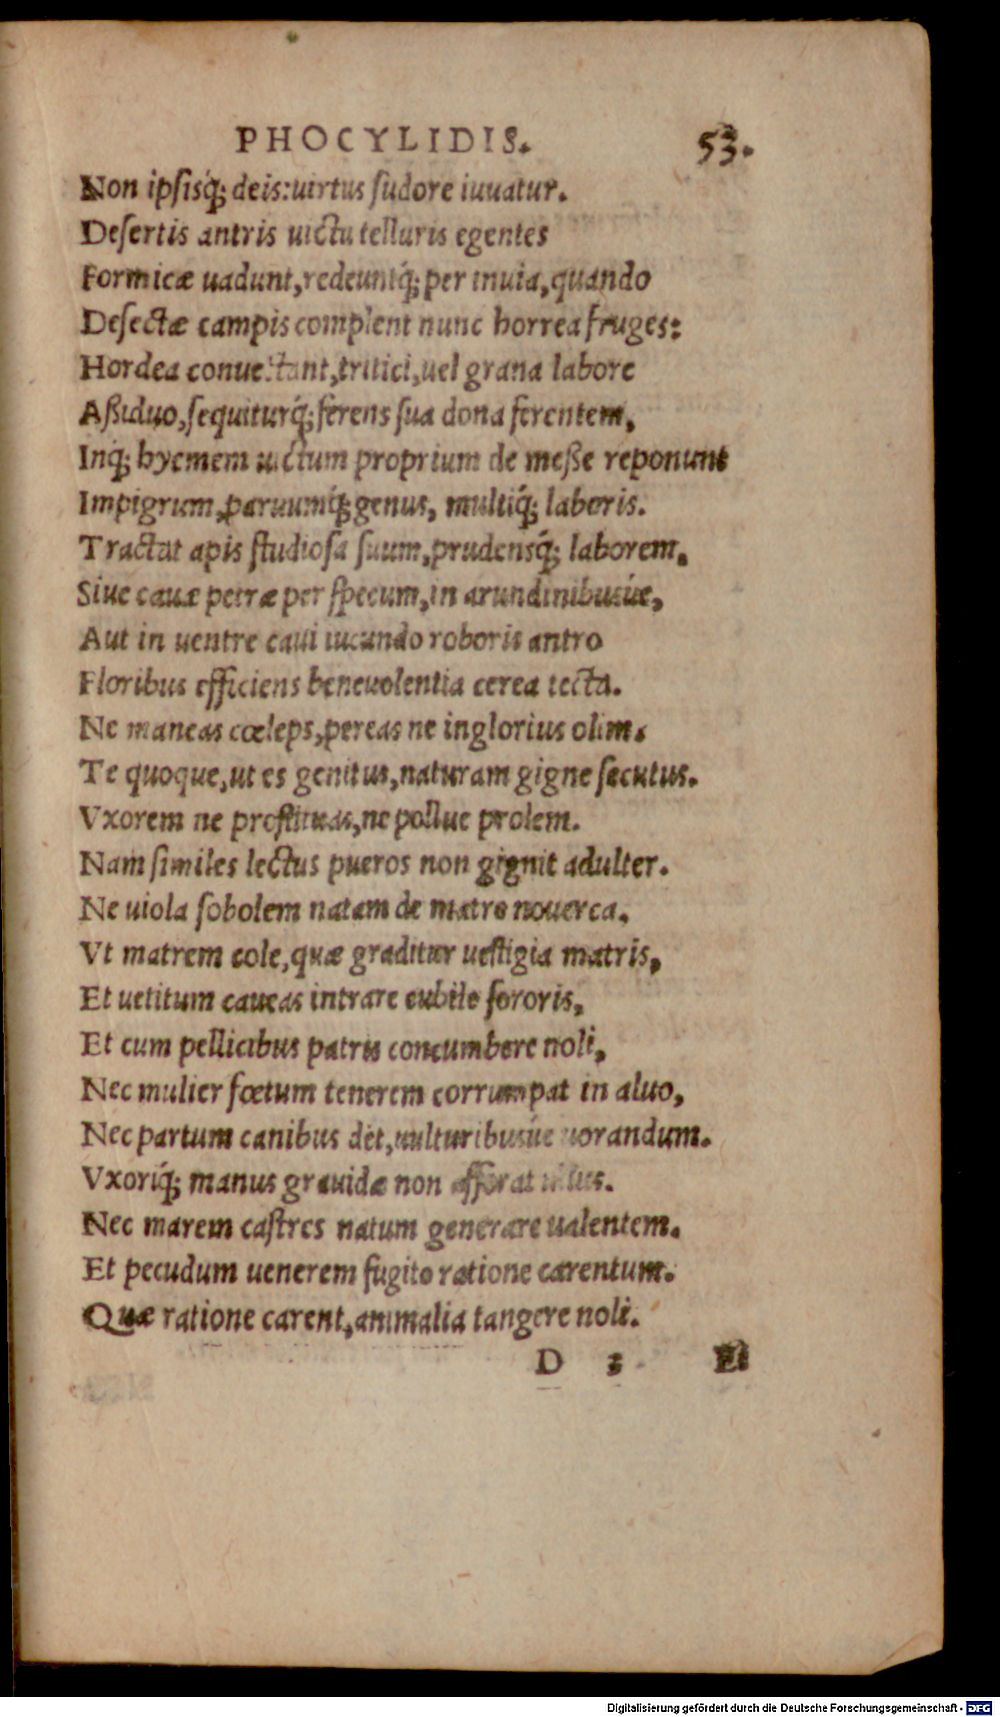 PHOCYLIDIS. 53.
Non ipsisq́; deis: uirtus sudore iuuatur.
Desertis antris uictu telluris egentes
Formicæ uadunt, redeuntq́; per inuia, quando
Desectæ campis complent nunc horrea fruges:
Hordea conuectant, tritici, uel grana labore
Aßiduo, sequiturq́; ferens sua dona ferentem,
Inq́; hyemem uictum proprium de meße reponunt
Impigrum, paruumq́; genus, multiq́; laboris.
Tractat apis studiosa suum, prudensq́; laborem,
Siue cauæ petræ per specum, in arundinibusúe,
Aut in uentre caui iucundo roboris antro
Floribus efficiens beneuolentia cerea tecta.
Ne maneas cœleps, pereas ne inglorius olim,
Te quoque, ut es genitus, naturam gigne secutus.
Vxorem ne prostituas, ne pollue prolem.
Nam similes lectus pueros non gignit adulter.
Ne uiola sobolem natam de matre nouerca,
Vt matrem cole, quæ graditur uestigia matris,
Et uetitum caueas intrare cubile sororis,
Et cum pellicibus patris concumbere noli,
Nec mulier fœtum tenerem corrumpat in aluo,
Nec partum canibus det, uulturibusúe uorandum.
Vxoriq́; manus grauidæ non afferat
Nec marem castres natum generare ualentem.
Et pecudum uenerem fugito ratione carentum.
Quæ ratione carent, animalia tangere noli.
D
Digitalisierung gefördert durch die Deutsche Forschungsgemeinschaft - DFG